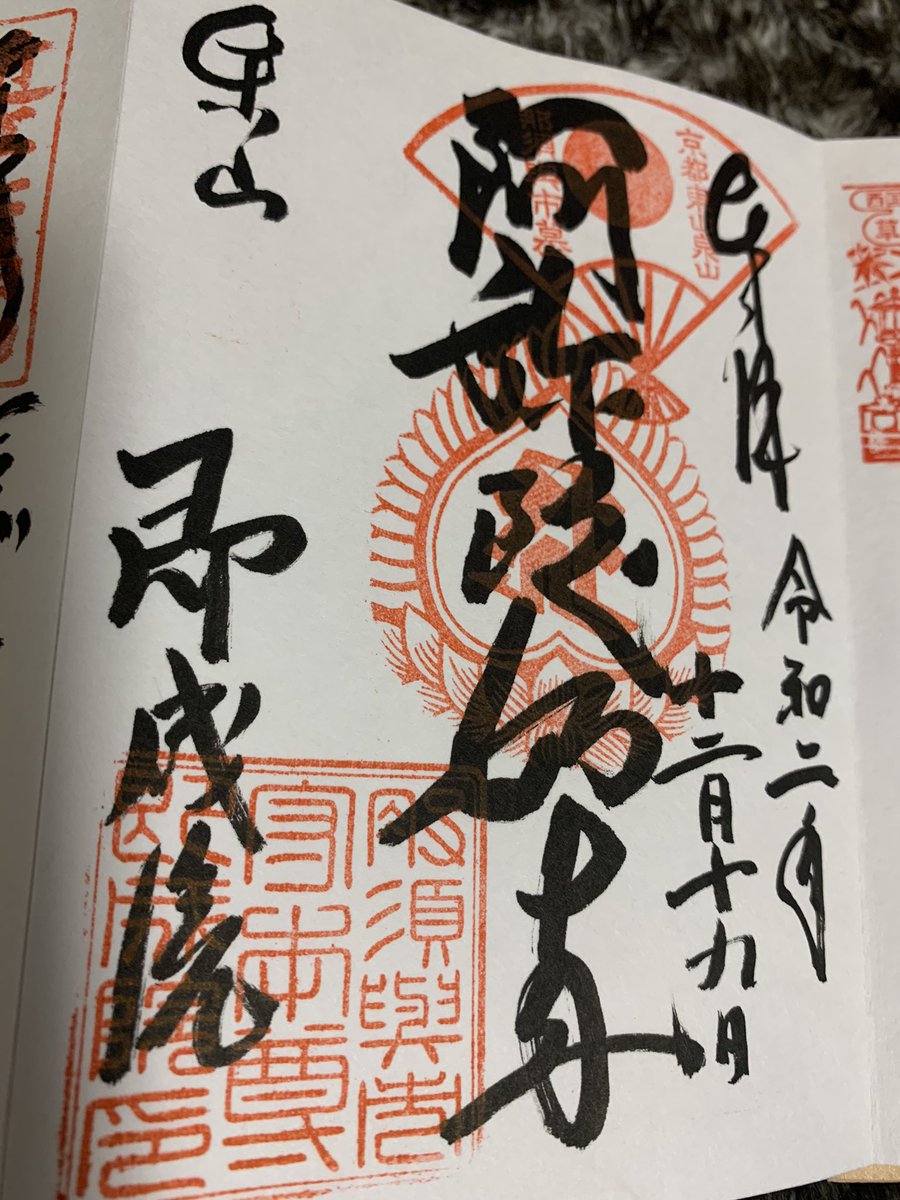 奉拝
令和二年
十二月十九日
京都東山泉山
阿弥陀如来
泉山
即成院
那須與市
守本尊
即成院印